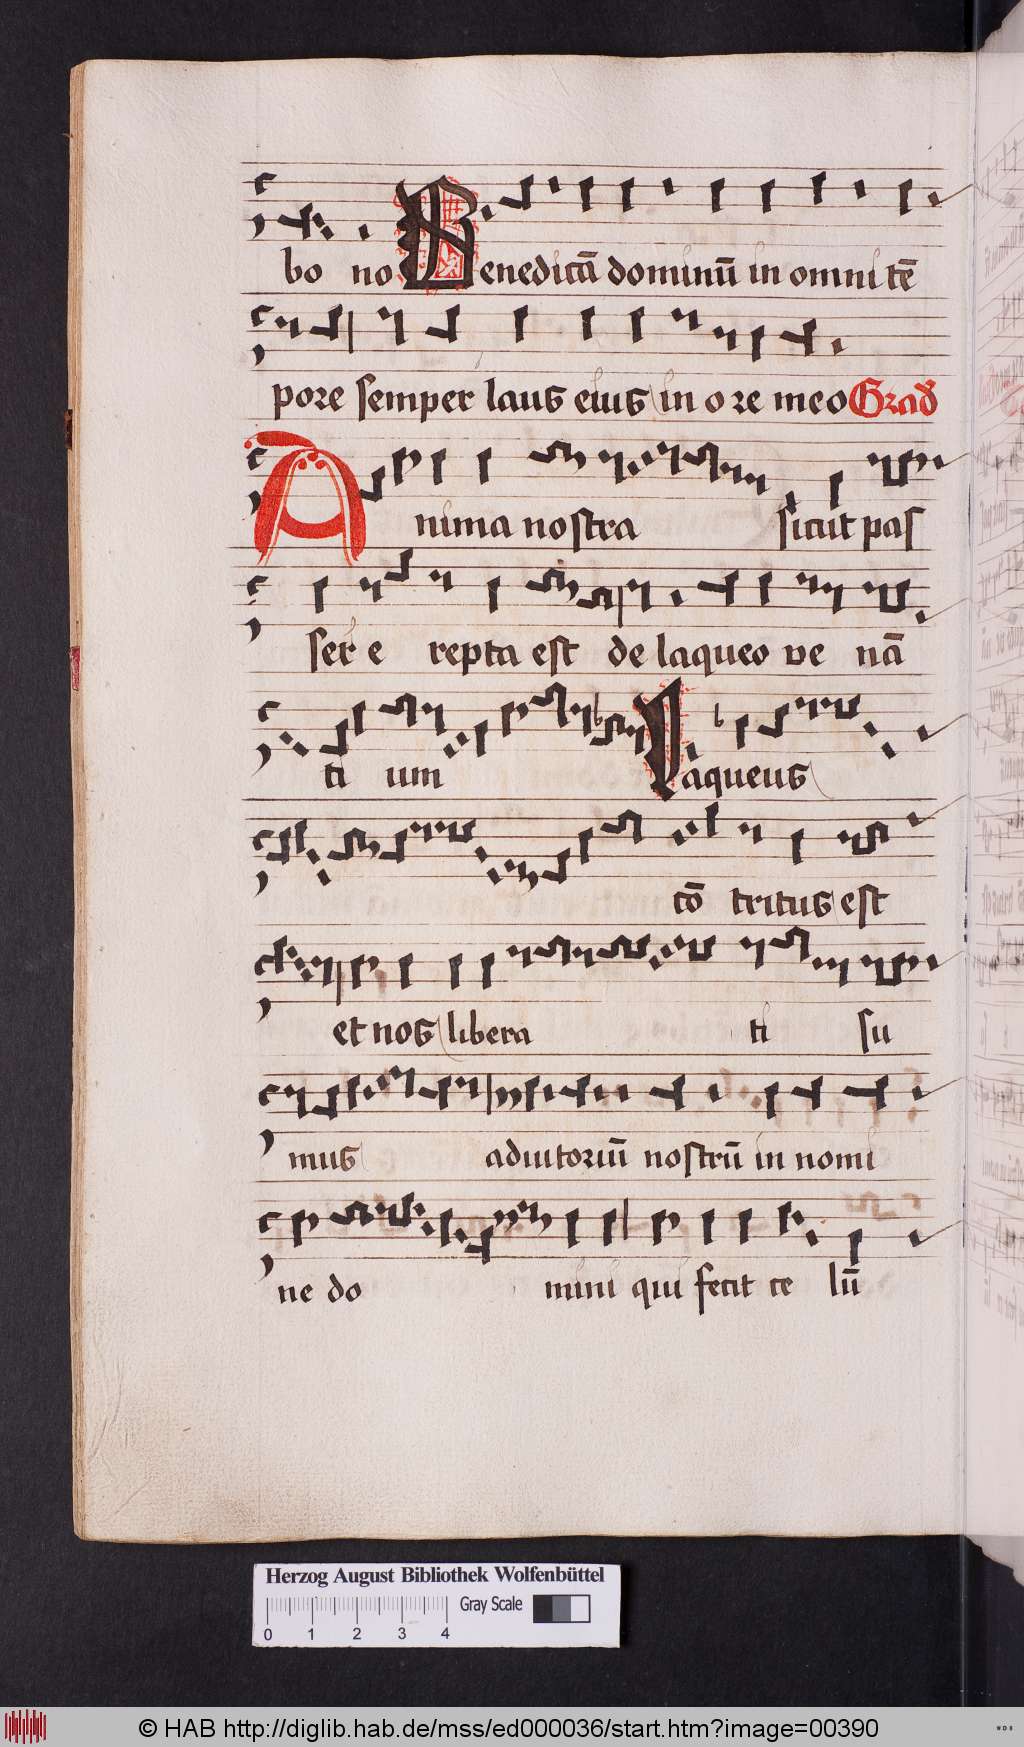 bo no Benedicā dominū in omni tē
pore semper laus eius in ore meo Grad
Anima nostra sicut pas
ser e repta est de laqueo ve nā
ti um Laqueus
cō tritus est
et nos libera ti su
mus adiutoriū nostrū in nomi
ne do mini qui fecit ce lū
Herzog August Bibliothek Wolfenbüttel
Gray Scale
0 1 2 3 4
© HAB http://diglib.hab.de/mss/ed000036/start.htm?image=00390